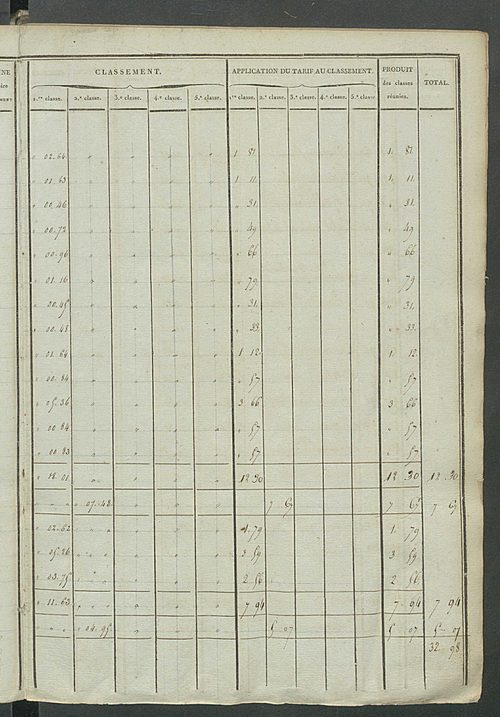 NE CLASSEMENT. APPLICATION DU TARIF AU CLASSEMENT. PRODUIT des classes réunies. TOTAL.
1.re classe. 2.e classe. 3.e classe. 4.e classe. 5.e classe. 1.re classe. 2.e classe. 3.e classe. 4.e classe. 5.e classe
" 02.64 " " " " 1 81. 1. 81.
" 01.63 " " " " 1 11. 1. 11.
" 00.46 " " " " " 31. " 31.
" 00.72 " " " " " 49 " 49
" 00.96 " " " " " 66 " 66
" 01.16 " " " " " 79 " 79
" 00.45 " " " " " 31. " 31.
" 00.48 " " " " " 33. " 33.
" 01.64 " " " " 1 12. 1 12.
" 00.84 " " " " " 57 " 57
" 05.36 " " " " 3 66 3 66
" 00 84 " " " " " 57 " 57
" 00 83 " " " " " 57 " 57
" 18.01 " " " " 12 30 12 30 12 30
" " 07.48 " " " 7 67 7 67 7 67
" 02.62 " " " " 1.79 1. 79
" 05.26 " " " " 3 59 3 59
" 03.75 " " " " 2 56 2 56
" 11.63 " " " " 7 94 7 94 7 94
" " 04.95 " " " 5 07 5 07 5 07
32 98